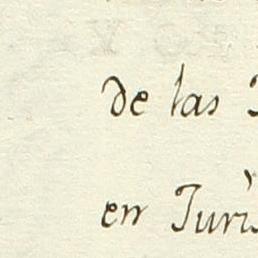 de las
en Juris